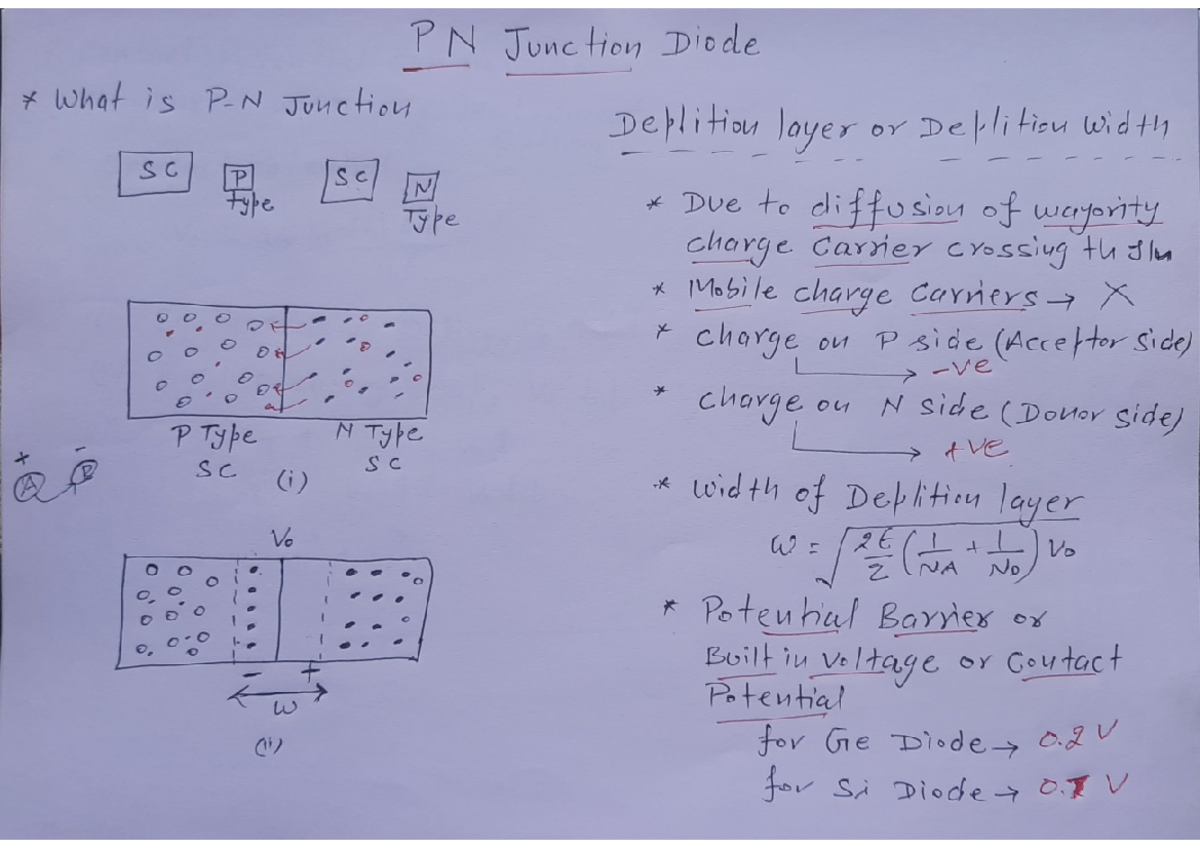 PN Junction Diode
* What is P-N Junction
SC P SC N
Type Type
P Type N Type
SC SC
+ -
A B
(i)
V₀
- +
W
(ii)
Deplition layer or Deplition Width
* Due to diffusion of wayority
charge Carrier crossing th Jn
* Mobile charge Carriers → X
* charge on P side (Acceptor side)
→ -ve
* charge on N side (Donor side)
→ +ve
* width of Deplition layer
W = √2ϵ/2 (1/NA + 1/ND) V₀
* Potential Barrier or
Built in voltage or Contact
Potential
for Ge Diode → 0.2 V
for Si Diode → 0.7 V